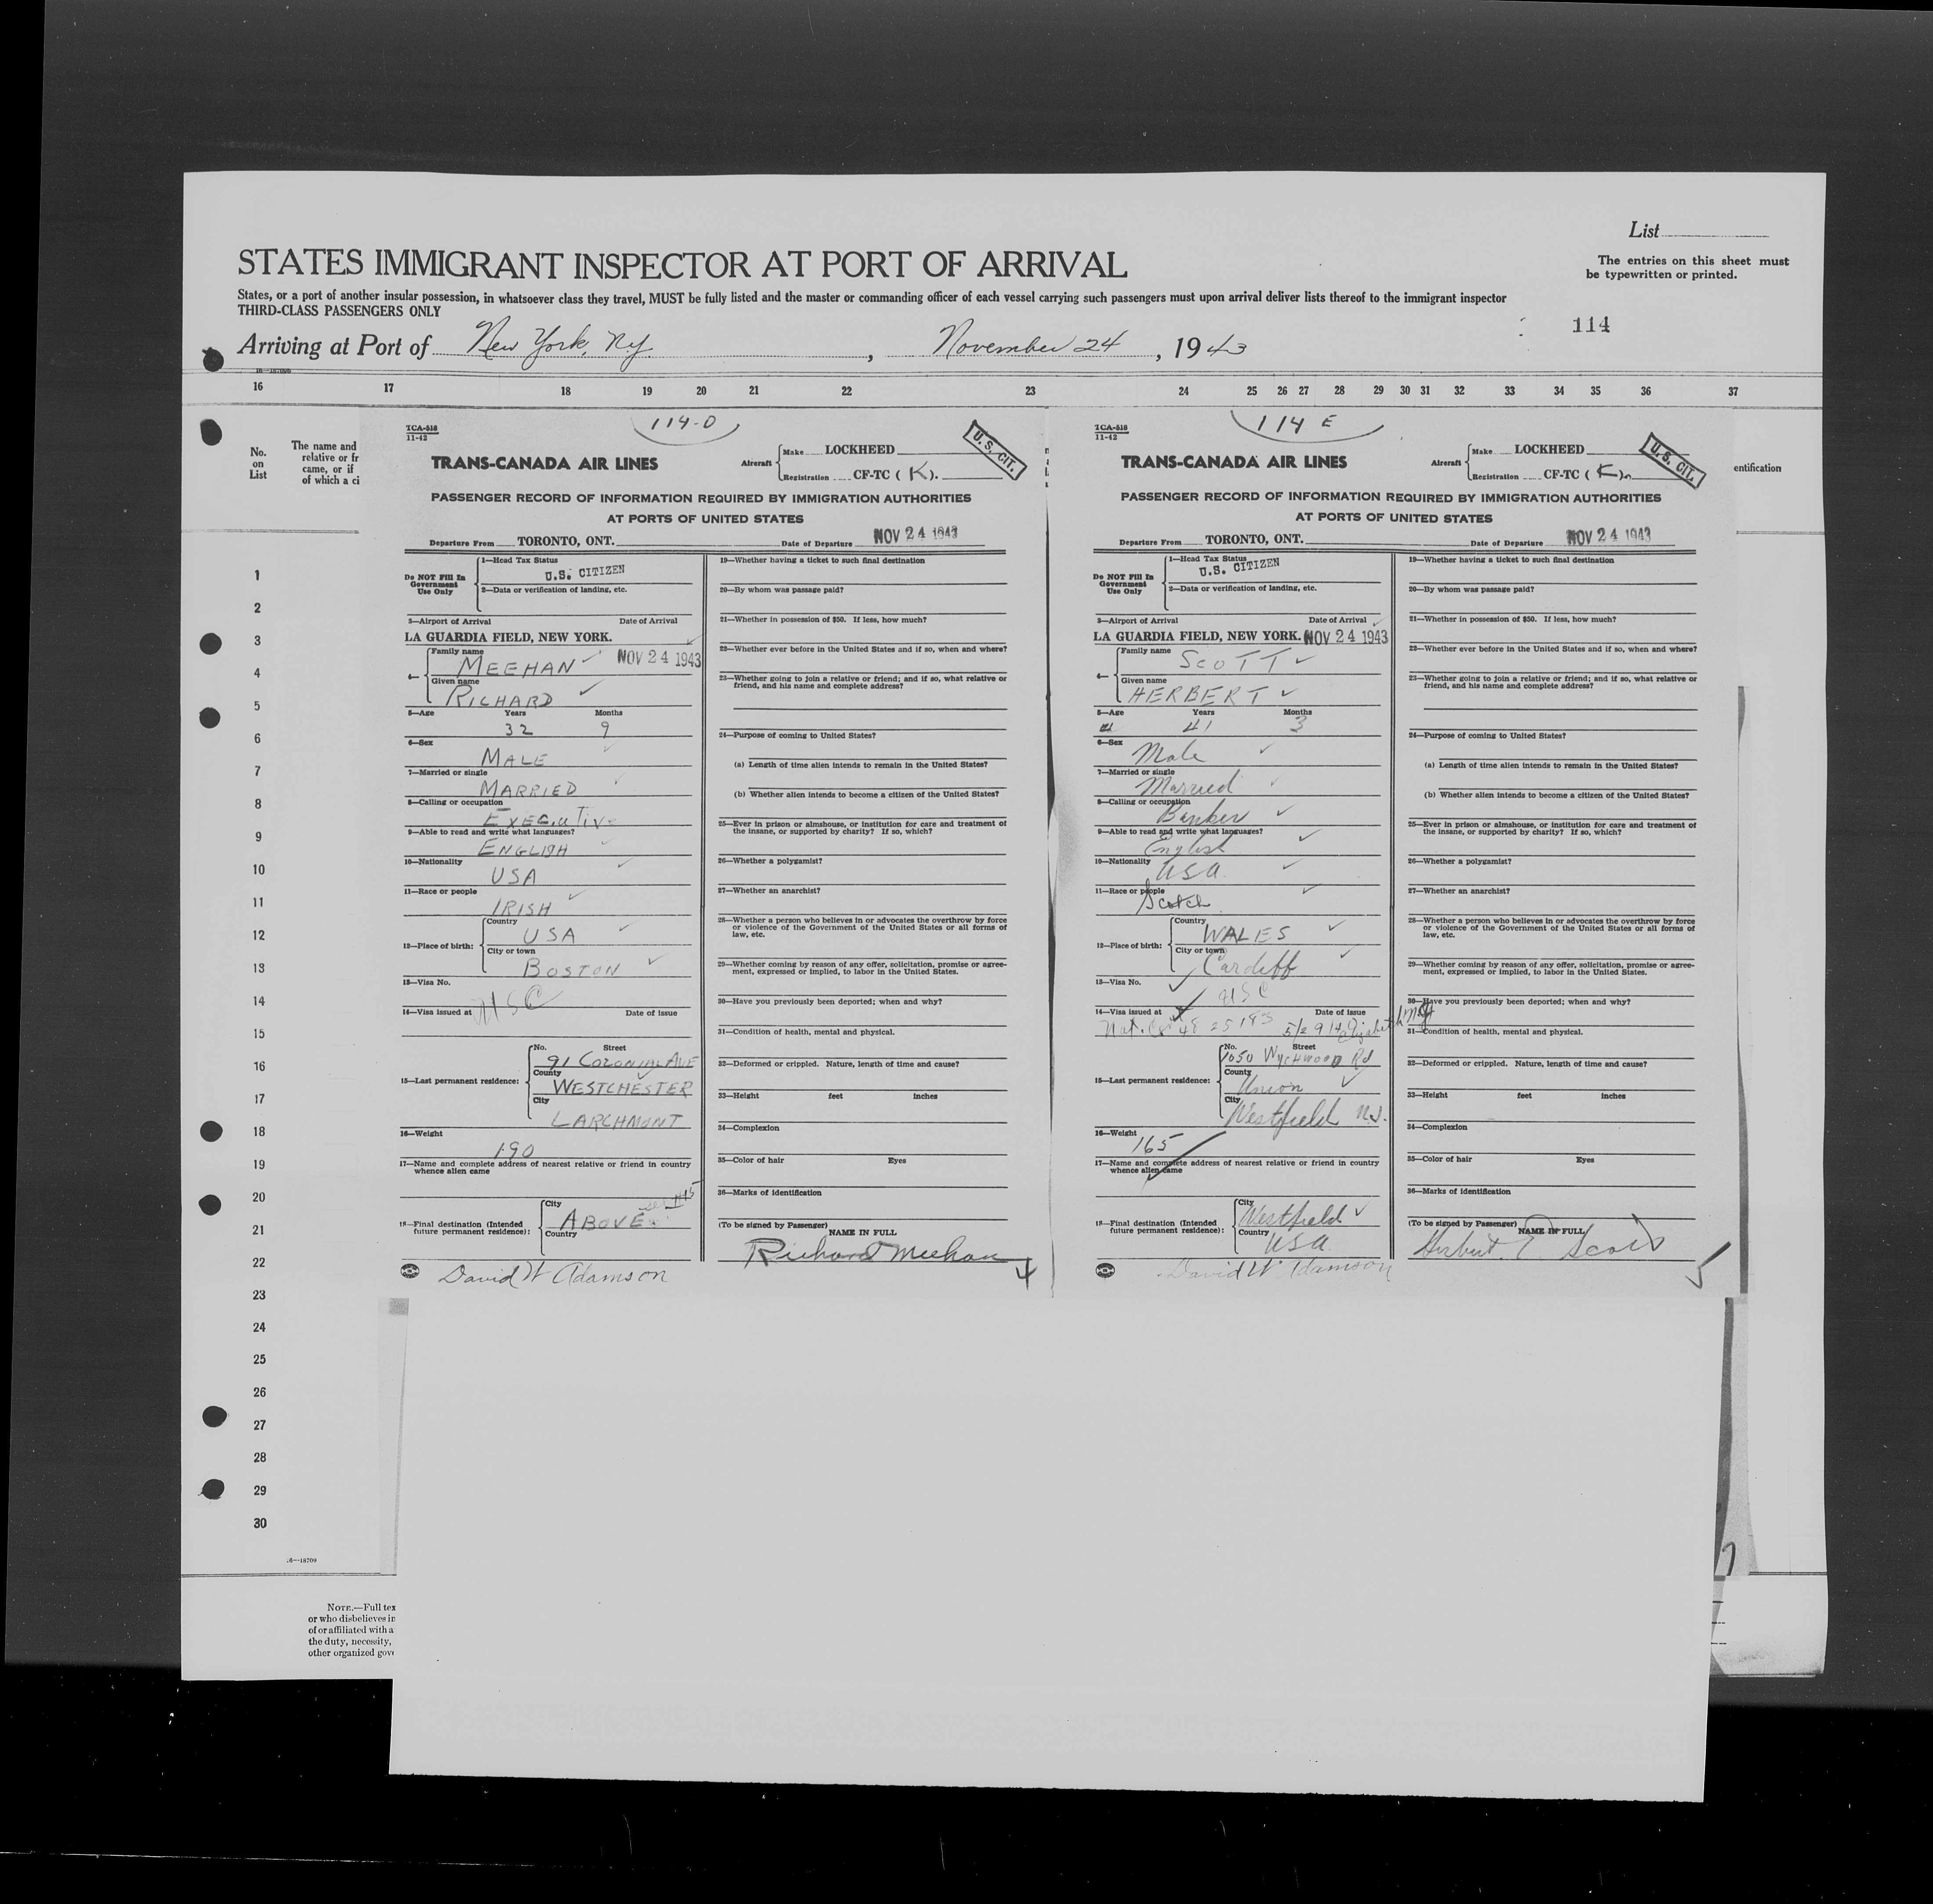 List
STATES IMMIGRANT INSPECTOR AT PORT OF ARRIVAL
The entries on this sheet must
be typewritten or printed.
States, or a port of another insular possession, in whatsoever class they travel, MUST be fully listed and the master or commanding officer of each vessel carrying such passengers must upon arrival deliver lists thereof to the immigrant inspector
THIRD-CLASS PASSENGERS ONLY
114
Arriving at Port of New York, N.Y. , November 24 , 1943
16 17 18 19 20 21 22 23 24 25 26 27 28 29 30 31 32 33 34 35 36 37
No.
on
List
The name and
relative or fr
came, or if
of which a ci
entification
1
2
3
4
5
6
7
8
9
10
11
12
13
14
15
16
17
18
19
20
21
22
23
24
25
26
27
28
29
30
NOTE.—Full tex
or who disbelieves in
of or affiliated with a
the duty, necessity,
other organized gove
114-D
TCA-518
11-42
U.S. CIT.
TRANS-CANADA AIR LINES
Aircraft
Make LOCKHEED
Registration CF-TC ( K ).
PASSENGER RECORD OF INFORMATION REQUIRED BY IMMIGRATION AUTHORITIES
AT PORTS OF UNITED STATES
Departure From TORONTO, ONT. Date of Departure NOV 24 1943
Do NOT Fill In
Government
Use Only
1—Head Tax Status
U.S. CITIZEN
2—Data or verification of landing, etc.
3—Airport of Arrival Date of Arrival
LA GUARDIA FIELD, NEW YORK.
NOV 24 1943
4— Family name
MEEHAN
Given name
RICHARD
5—Age Years Months
32 9
6—Sex
MALE
7—Married or single
MARRIED
8—Calling or occupation
EXECUTIVE
9—Able to read and write what languages?
ENGLISH
10—Nationality
USA
11—Race or people
IRISH
12—Place of birth:
Country
USA
City or town
BOSTON
13—Visa No.
USC
14—Visa issued at Date of issue
15—Last permanent residence:
No. Street
91 COLONIAL AVE
County
WESTCHESTER
City
LARCHMONT
16—Weight
190
17—Name and complete address of nearest relative or friend in country
whence alien came
18—Final destination (Intended
future permanent residence):
City
ABOVE
Country
David W Adamson
19—Whether having a ticket to such final destination
20—By whom was passage paid?
21—Whether in possession of $50. If less, how much?
22—Whether ever before in the United States and if so, when and where?
23—Whether going to join a relative or friend; and if so, what relative or
friend, and his name and complete address?
24—Purpose of coming to United States?
(a) Length of time alien intends to remain in the United States?
(b) Whether alien intends to become a citizen of the United States?
25—Ever in prison or almshouse, or institution for care and treatment of
the insane, or supported by charity? If so, which?
26—Whether a polygamist?
27—Whether an anarchist?
28—Whether a person who believes in or advocates the overthrow by force
or violence of the Government of the United States or all forms of
law, etc.
29—Whether coming by reason of any offer, solicitation, promise or agree-
ment, expressed or implied, to labor in the United States.
30—Have you previously been deported; when and why?
31—Condition of health, mental and physical.
32—Deformed or crippled. Nature, length of time and cause?
33—Height feet inches
34—Complexion
35—Color of hair Eyes
36—Marks of identification
(To be signed by Passenger) NAME IN FULL
Richard Meehan
4
114 E
TCA-518
11-42
U.S. CIT.
TRANS-CANADA AIR LINES
Aircraft
Make LOCKHEED
Registration CF-TC ( K ).
PASSENGER RECORD OF INFORMATION REQUIRED BY IMMIGRATION AUTHORITIES
AT PORTS OF UNITED STATES
Departure From TORONTO, ONT. Date of Departure NOV 24 1943
Do NOT Fill In
Government
Use Only
1—Head Tax Status
U.S. CITIZEN
2—Data or verification of landing, etc.
3—Airport of Arrival Date of Arrival
LA GUARDIA FIELD, NEW YORK. NOV 24 1943
4— Family name
SCOTT
Given name
HERBERT
5—Age Years Months
41 3
6—Sex
Male
7—Married or single
Married
8—Calling or occupation
Banker
9—Able to read and write what languages?
English
10—Nationality
USA
11—Race or people
Scotch
12—Place of birth:
Country
WALES
City or town
Cardiff
13—Visa No.
USC
14—Visa issued at Date of issue
15—Last permanent residence:
No. Street
1050 Wychwood Rd
County
Union
City
Westfield N.J.
16—Weight
165
17—Name and complete address of nearest relative or friend in country
whence alien came
18—Final destination (Intended
future permanent residence):
City
Westfield
Country
USA
David W. Adamson
19—Whether having a ticket to such final destination
20—By whom was passage paid?
21—Whether in possession of $50. If less, how much?
22—Whether ever before in the United States and if so, when and where?
23—Whether going to join a relative or friend; and if so, what relative or
friend, and his name and complete address?
24—Purpose of coming to United States?
(a) Length of time alien intends to remain in the United States?
(b) Whether alien intends to become a citizen of the United States?
25—Ever in prison or almshouse, or institution for care and treatment of
the insane, or supported by charity? If so, which?
26—Whether a polygamist?
27—Whether an anarchist?
28—Whether a person who believes in or advocates the overthrow by force
or violence of the Government of the United States or all forms of
law, etc.
29—Whether coming by reason of any offer, solicitation, promise or agree-
ment, expressed or implied, to labor in the United States.
30—Have you previously been deported; when and why?
31—Condition of health, mental and physical.
32—Deformed or crippled. Nature, length of time and cause?
33—Height feet inches
34—Complexion
35—Color of hair Eyes
36—Marks of identification
(To be signed by Passenger) NAME IN FULL
Herbert Scott
5